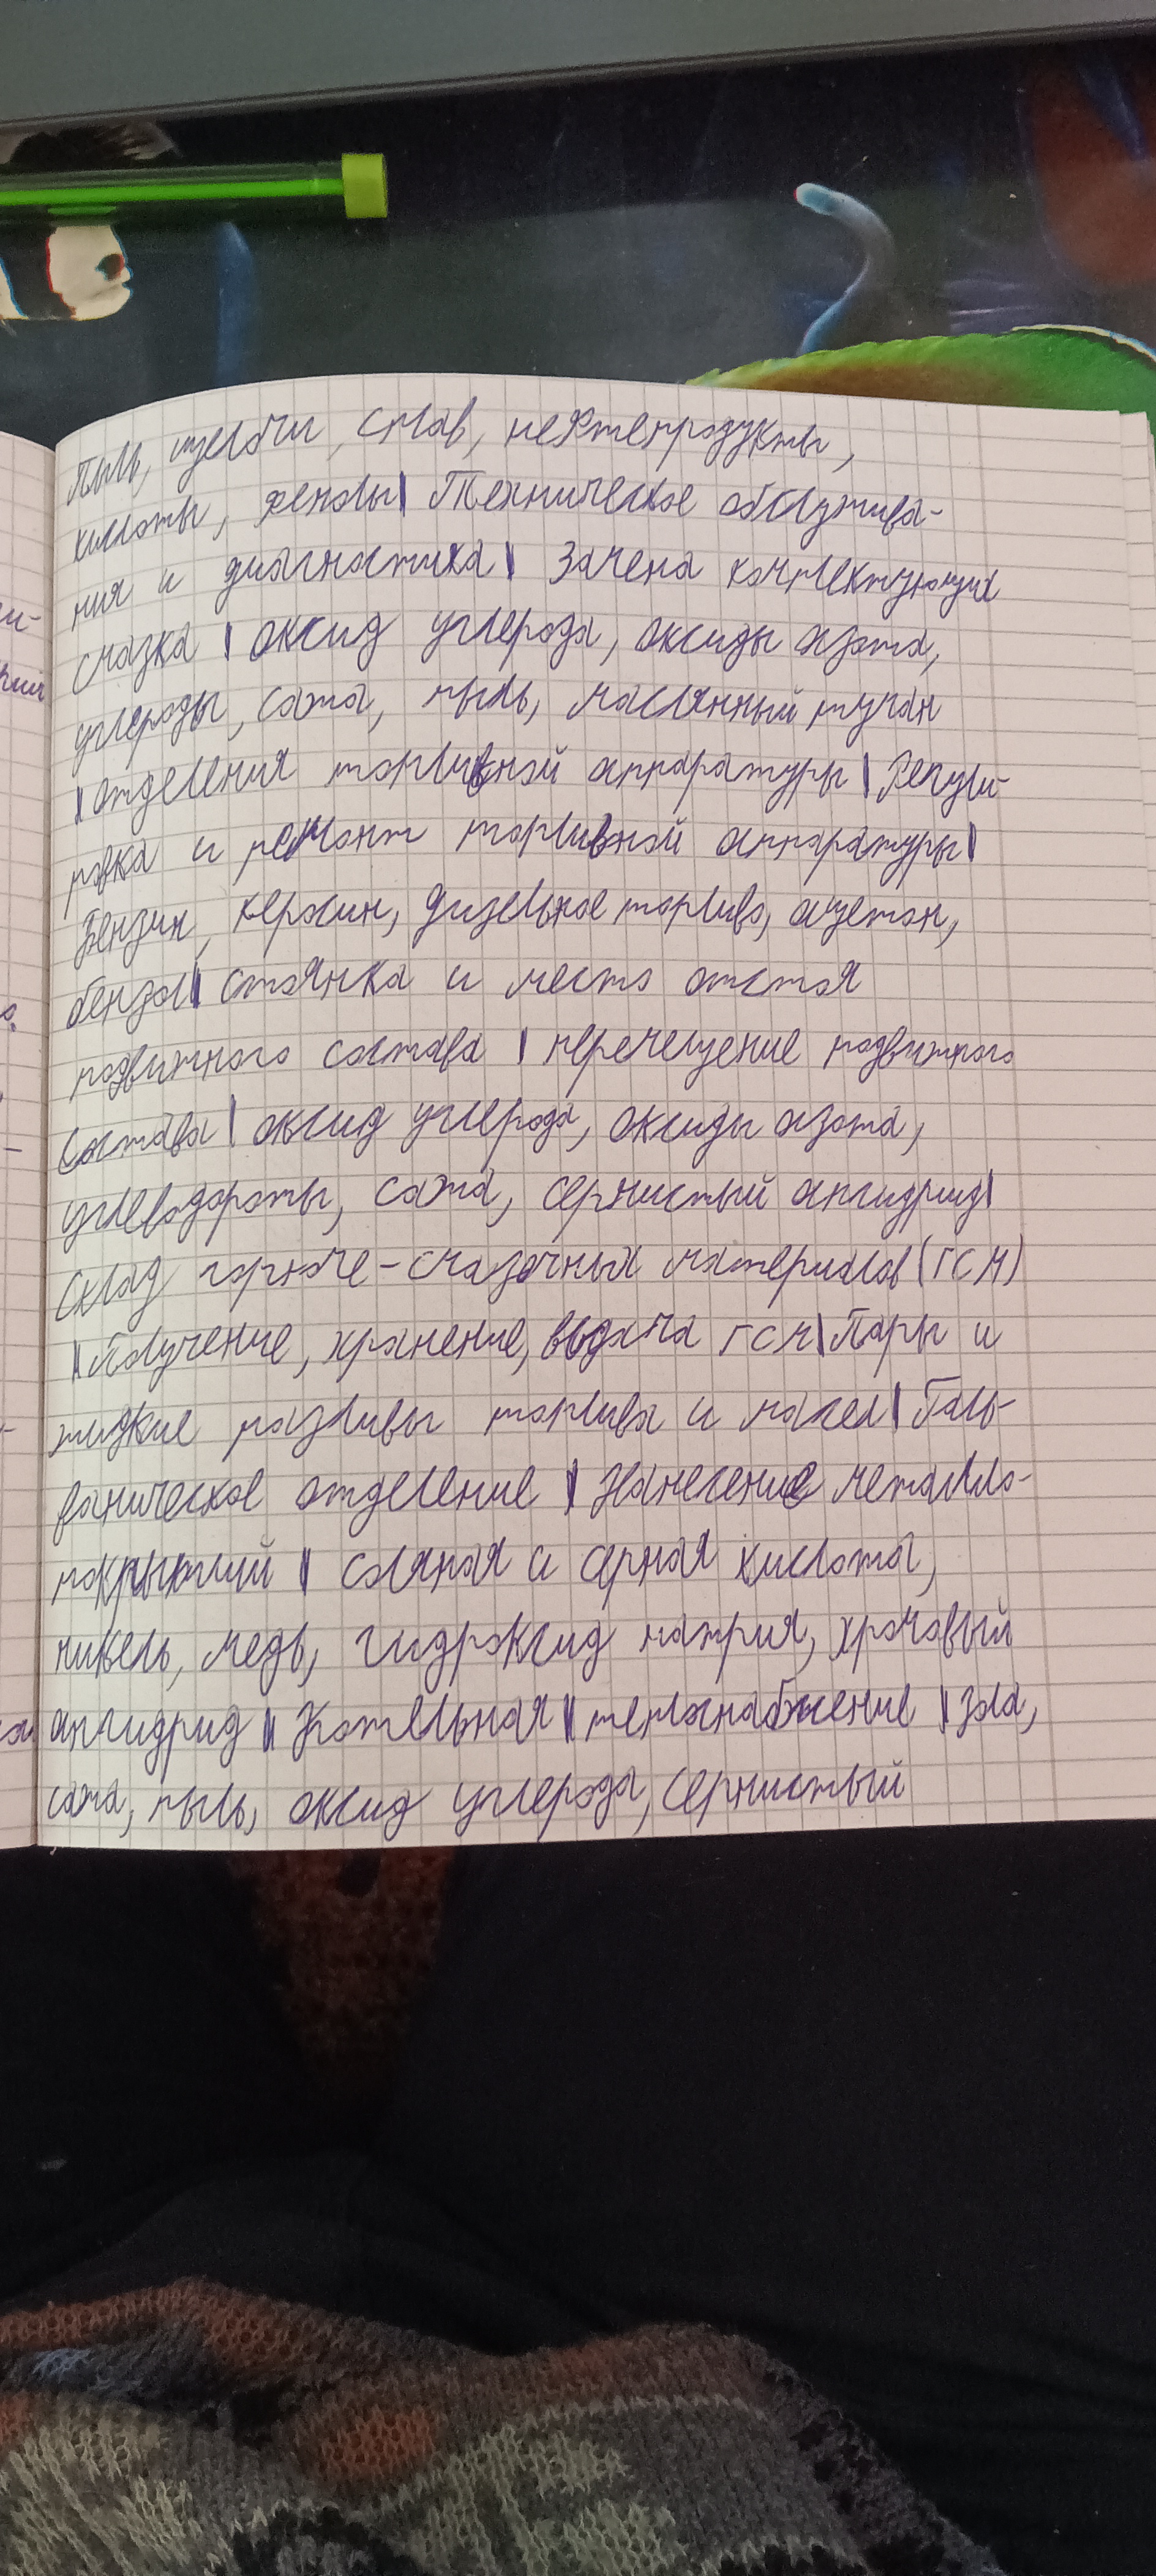 Пыль, щелочи, СПАВ, нефтепродукты,
кислоты, фенолы | Техническое обслужива-
ния и диагностика | Замена комплектующих
смазка | оксид углерода, оксиды азота,
углероды, сажа, пыль, маслянный туман
| отделения топливной аппаратуры | Регули-
ровка и ремонт топливной аппаратуры |
Бензин, керосин, дизельное топливо, ацетон,
бензол | стоянка и место отстоя
подвижного состава | перемещение подвижного
состава | оксид углерода, оксиды азота,
углеводороты, сажа, сернистый ангидрид |
склад горюче-смазочных материалов (ГСМ)
| Получение, хранение, выдача ГСМ | Пары и
жидкие разливы топлива и масел | Галь-
ваническое отделение | Нанесение металло-
покрытий | соляная и серная кислота,
никель, медь, гидроксид натрия, хромовый
ангидрид | Котельная | теплоснабжение | зола,
сажа, пыль, оксид углерода, сернистый